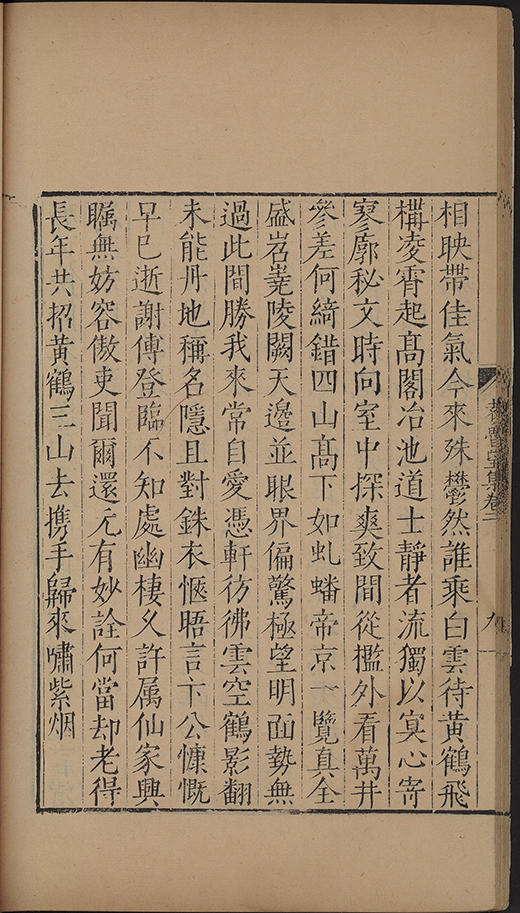 相映帶佳氣今來殊鬱然誰乘白雲待黃鶴飛
構凌霄起高閣冶池道士靜者流獨以寞心寄
寥廓秘文時向室中探爽致間從檻外看萬井
參差何綺錯四山高下如虬蟠帝京一覽真全
盛岧嶤陵闕天邊並眼界偏驚極望明面勢無
過此間勝我來常自愛憑軒彷彿雲空鶴影翻
未能丹地稱名隱且對銖衣愜晤言卞公慷慨
早已逝謝傅登臨不知處幽棲久許属仙家興
矚無妨容傲吏聞爾還元有妙詮何當却老得
長年共招黃鶴三山去携手歸來嘯紫烟
集卷二
九